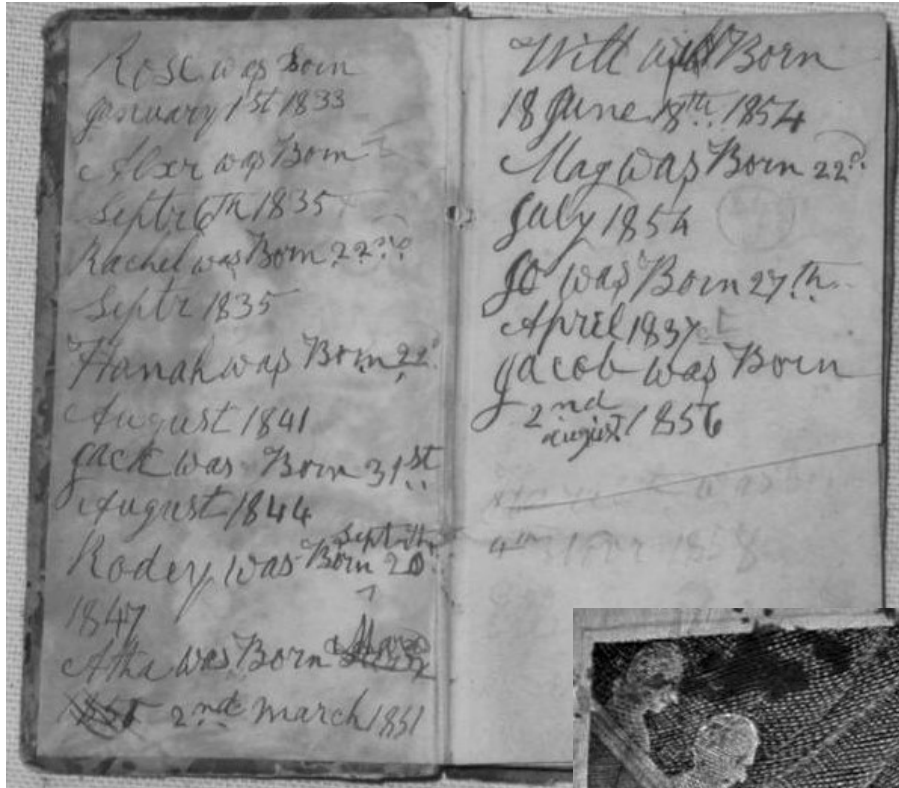 Rose was Born
January 1st 1833
Alexr was Born
Septr 6th 1835
Rachel was Born 22nd
Septr 1835
Hanah was Born 22d
August 1841
Jack was Born 31st
August 1844
Septr
Rodey was Born 20
1847
Atha was Born
2nd March 1851
Will was Born
18 June 18th 1854
Mag was Born 22d
July 1854
Jo was Born 27th
April 1837
Jacob was Born
2nd
august 1856